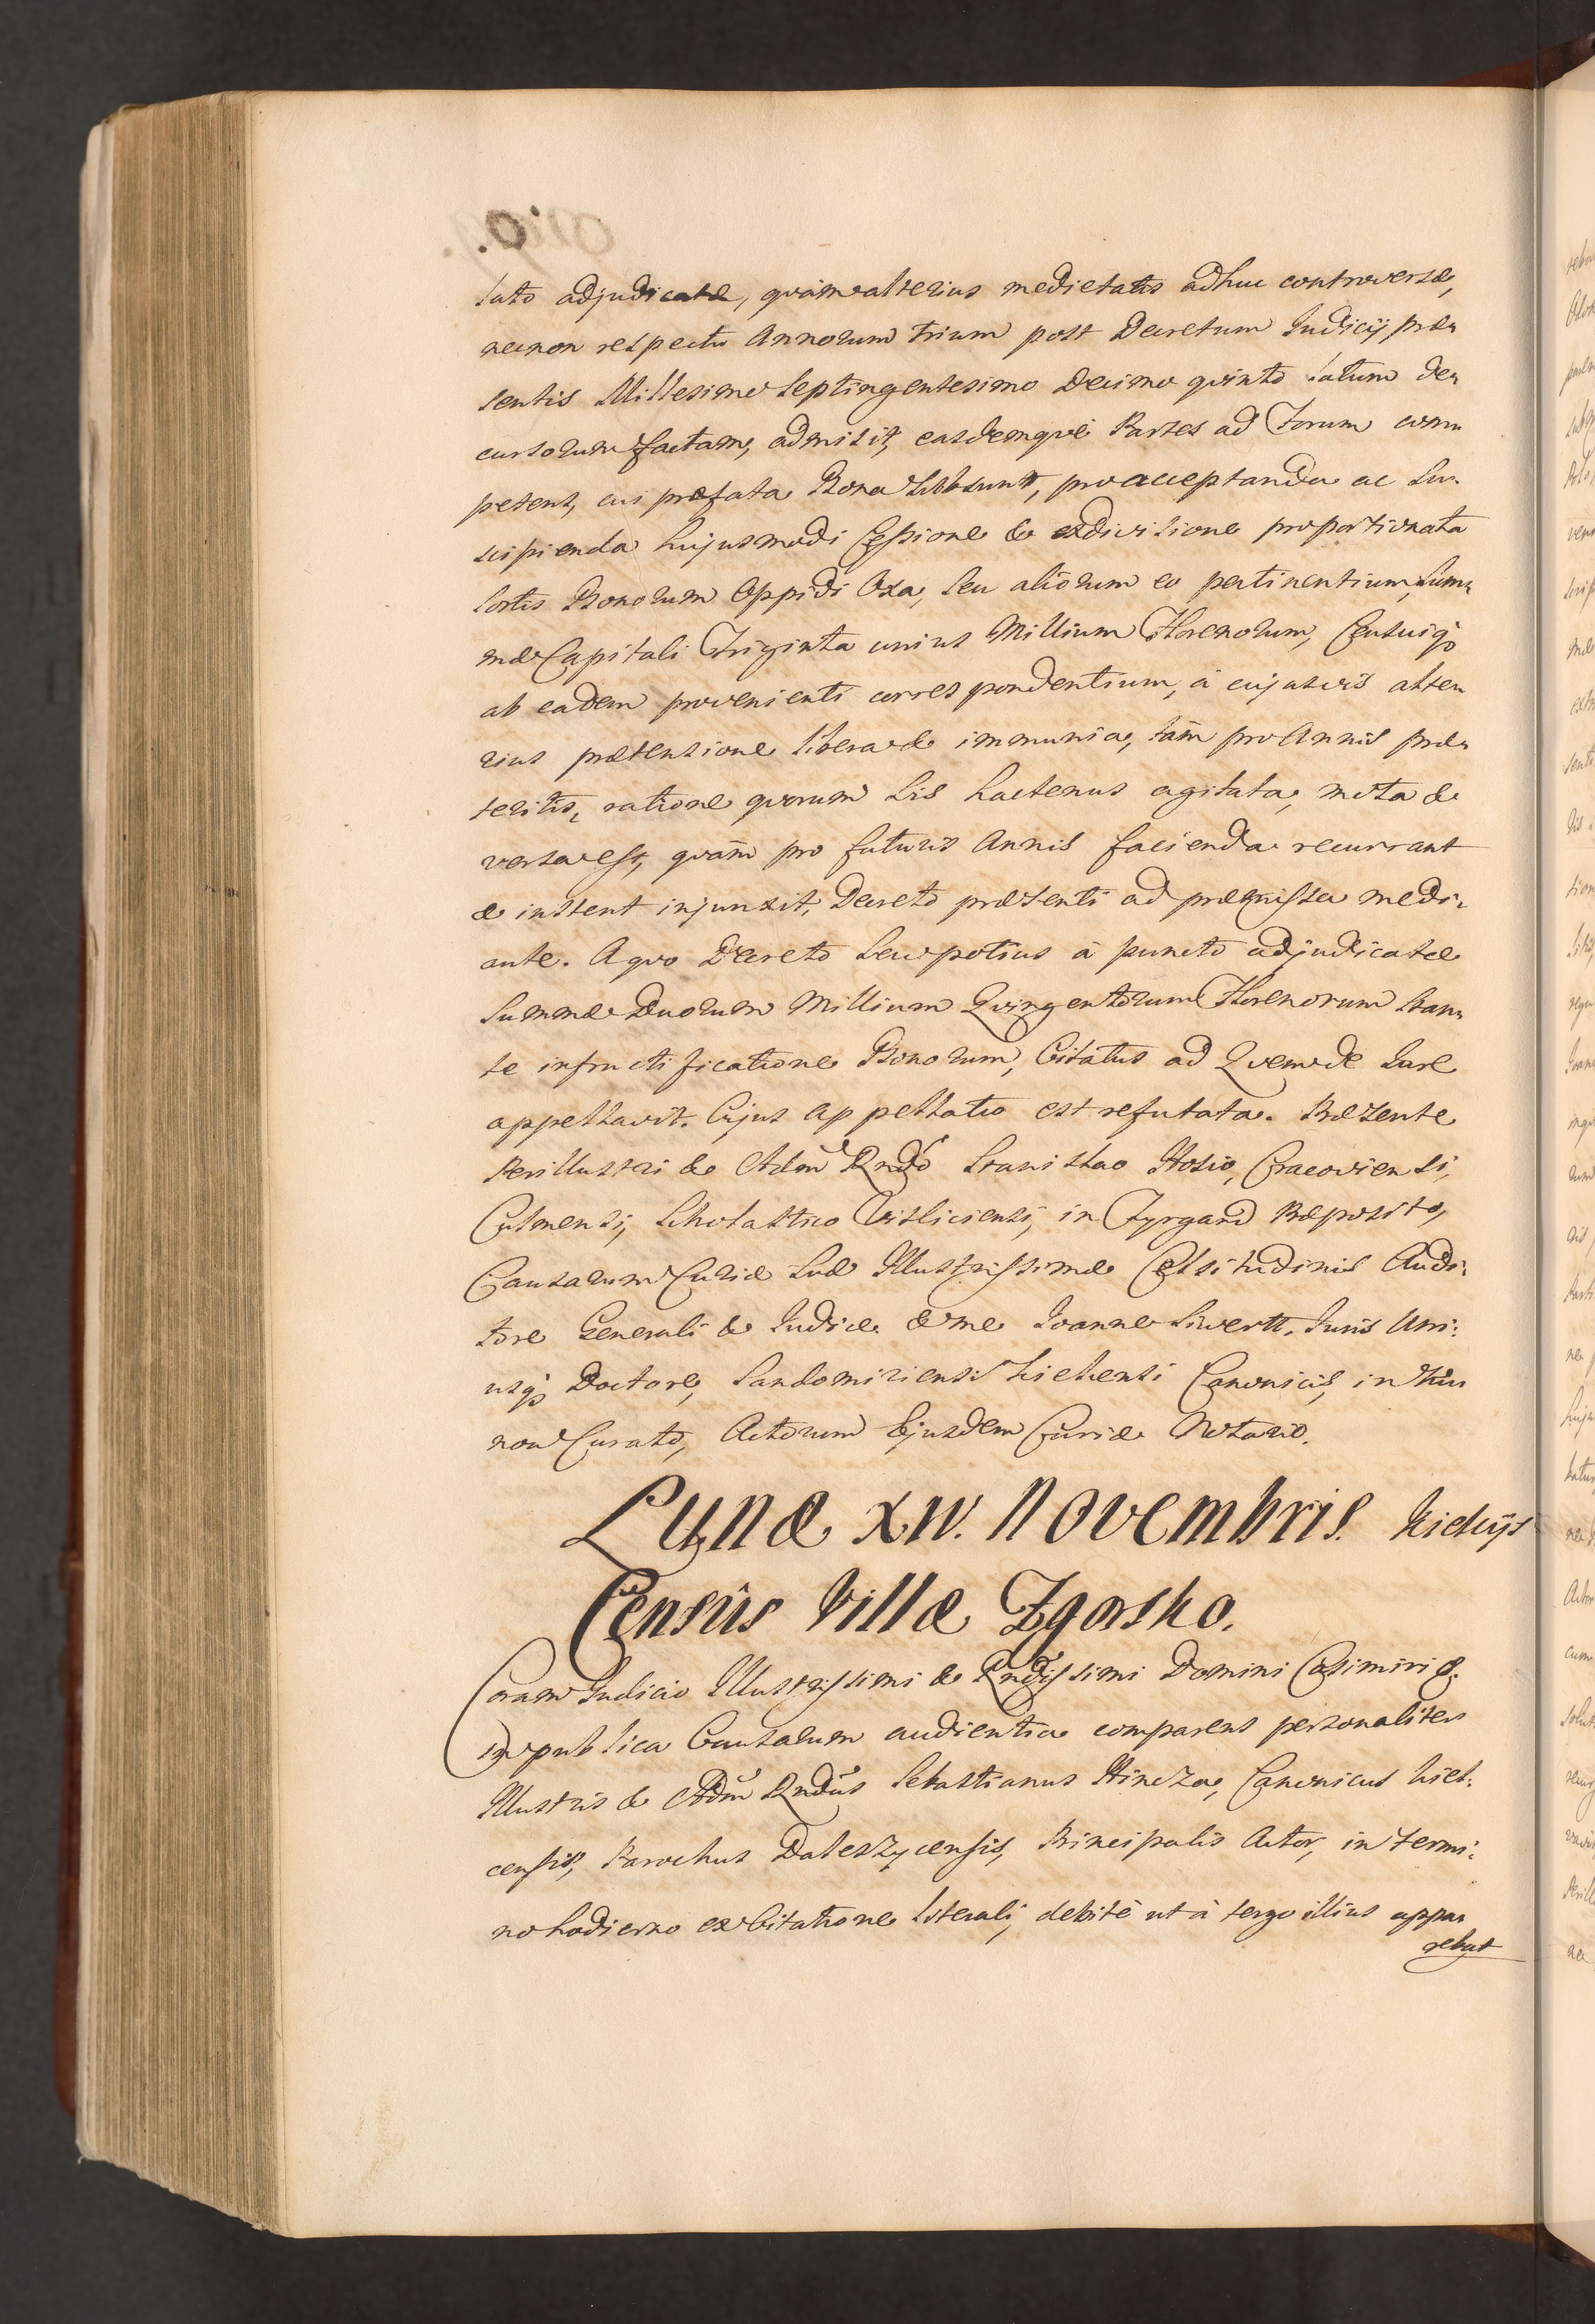 lato adjudicatæ, quàm alterius medietatis adhuc controversæ,
necnon respectu Annorum trium post Decretum Judicij præ„
sentis Millesimo Septingentesimo Decimo quinto latum de„
cursorum factam, admisit, easdemque Partes ad Forum com„
petens, cui præfata Bona subsunt, pro acceptanda ac su„
scipienda hujusmodi Cessione & exdivisione proportionata
sortis Bonorum Oppidi Oxa, seu aliorum eo pertinentium, Sum„
mæ Capitali Triginta unius Millium Florenorum, Censuiq;
ab eadem provenienti correspondentium, à cujusvis alte„
rius prætensione libera & immunia, tàm pro Annis præ„
teritis, ratione quorum Lis hactenus agitata, mota &
versa est, quàm pro futuris Annis facienda recurrant
& instent injunxit, Decreto præsenti ad præmissa medi„
ante. A quo Decreto seu potius à puncto adjudicatæ
Summæ Duorum Millium Quingentorum Florenorum stan„
te infructificatione Bonorum, Citatus ad Quem de Jure
appellavit. Cujus Appellatio est refutata. Præsente
Perillustri & Adm̃ Rndo Stanislao Hosio, Cracoviensi,
Culmensi, Scholastico Visliciensi, in Tyrgard Præposito,
Causarum Curiæ Suæ Illustrissimæ Celsitudinis Audi:
tore Generali & Judice & me Joanne Siwertt, Juris Utri:
usq; Doctore, Sandomiriensi Kielcensi Canonicis, in
now Curato, Actorum Ejusdem Curiæ Notario.
Lunæ XIV. Novembris. Kielcijs
Censûs Villæ Zgorsko.
Coram Judicio Illustrissimi & Rndissimi Domini Casimiri &.
in publica Causarum audientia comparens personaliter
Illustris & Adm̃ Rndus Sebastianus Hincza, Canonicus Kiel:
censis, Parochus Daleszycensis, Principalis Actor, in termi:
no hodierno ex Citatione literali, debitè ut à tergo illius appa„
rebat